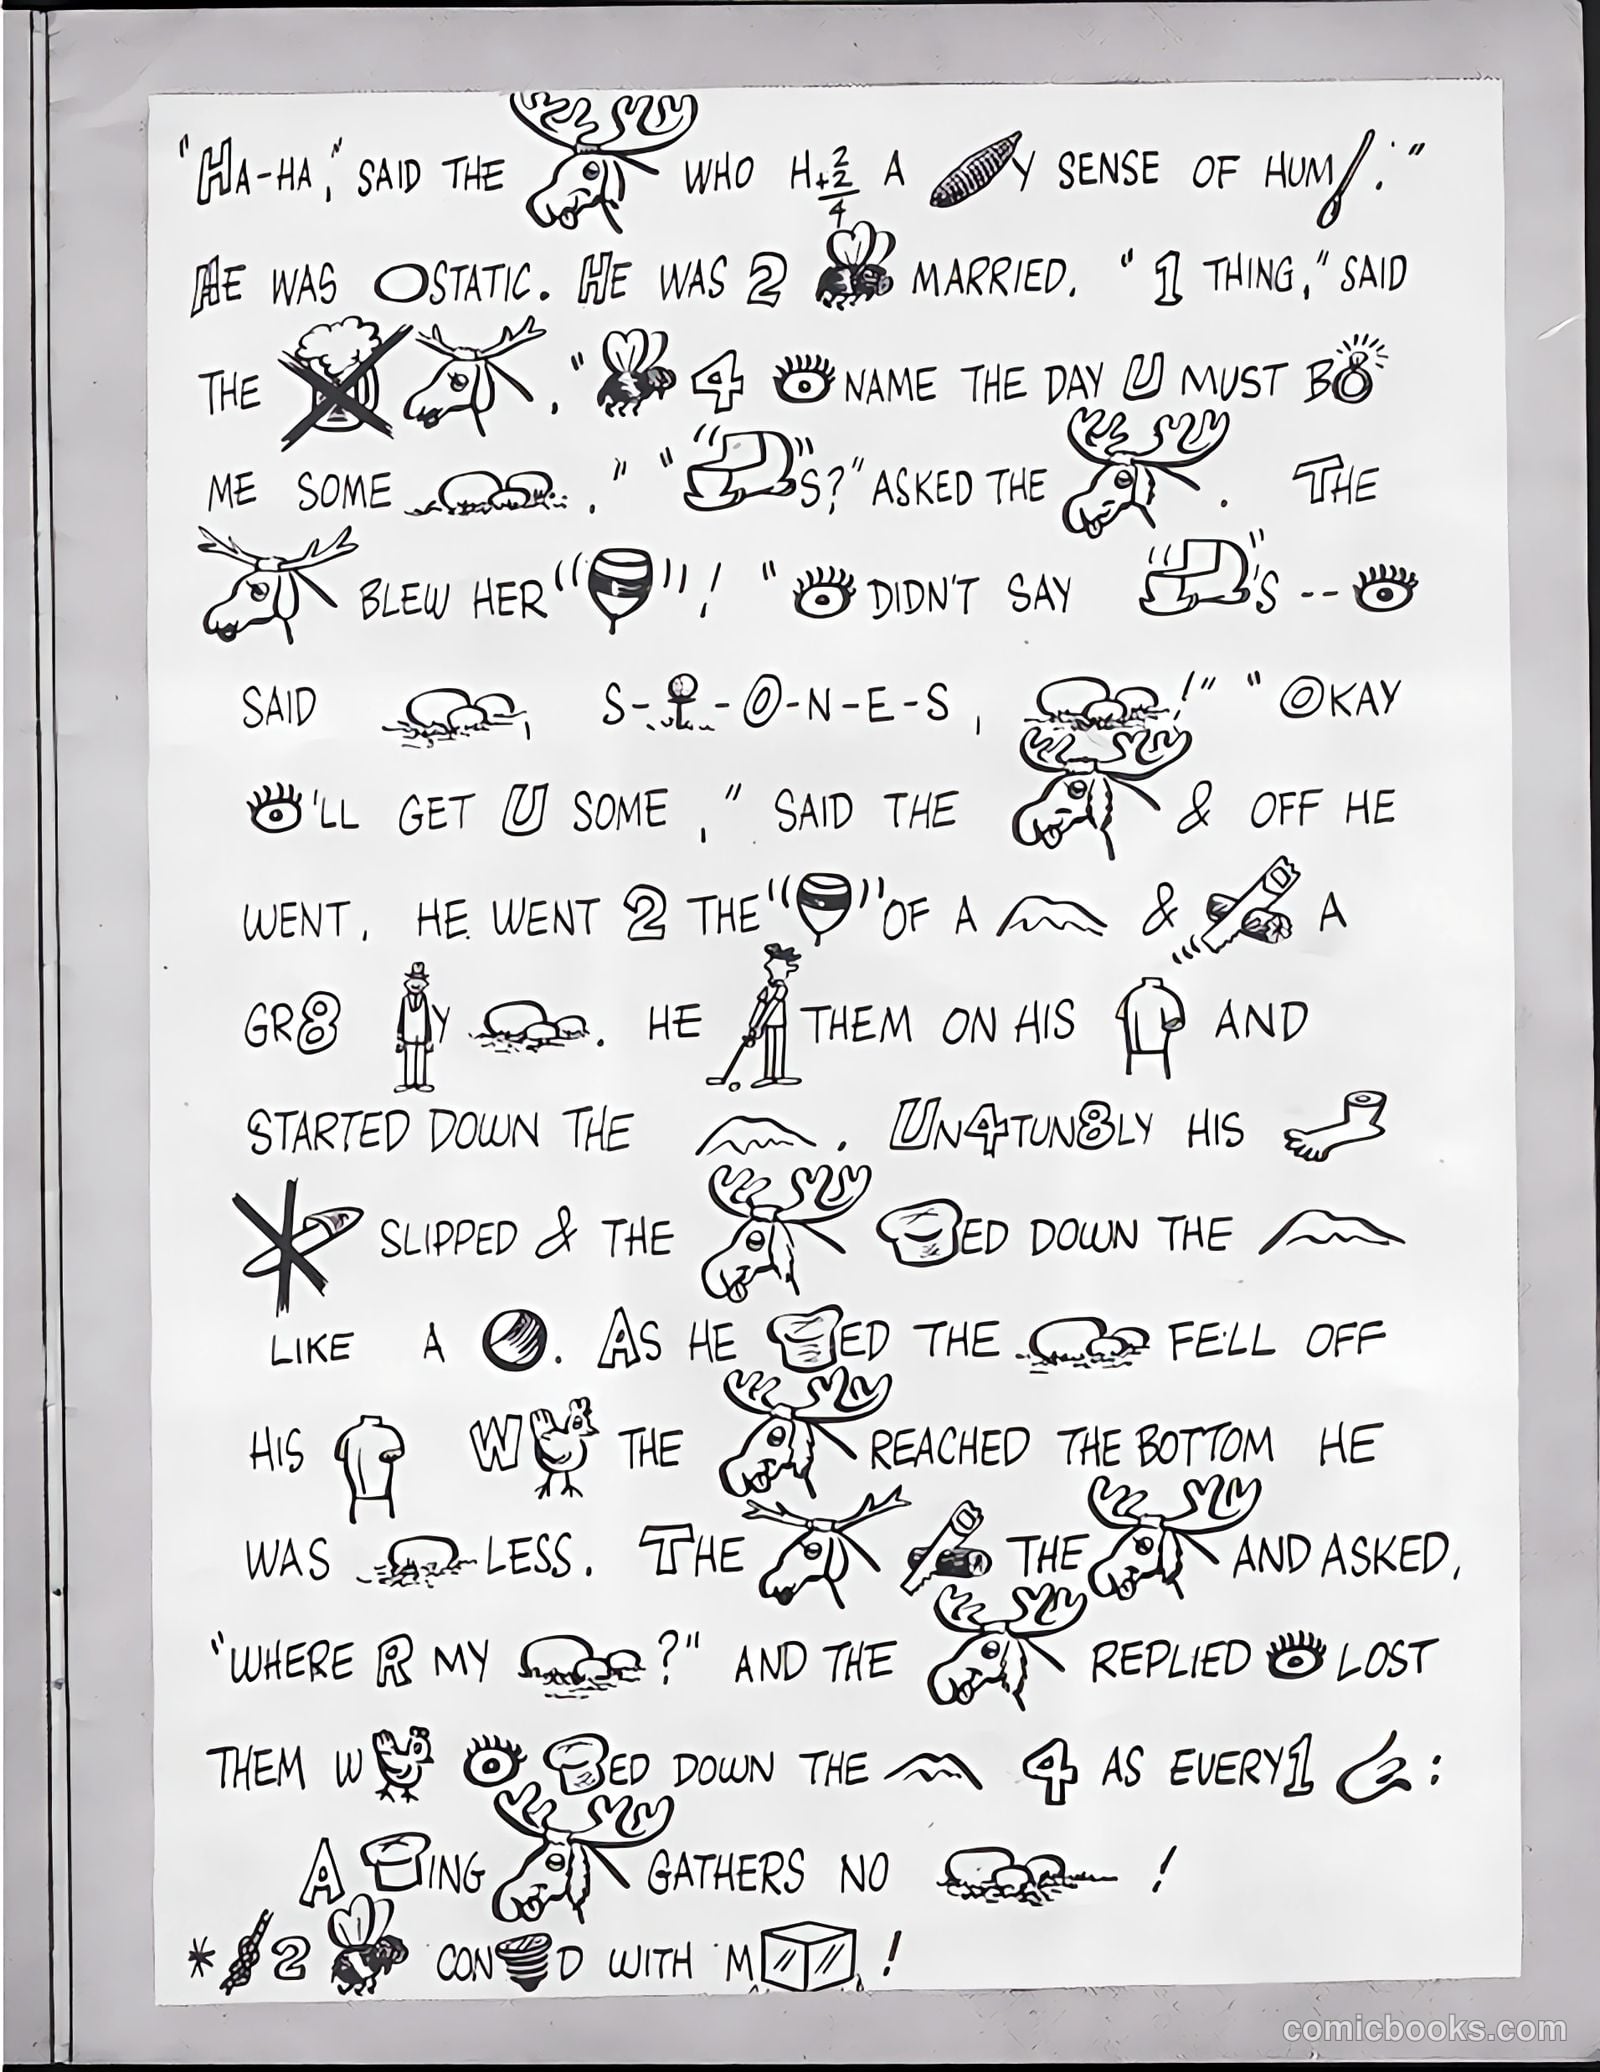 "HA-HA," SAID THE WHO H+2/2/4 A Y SENSE OF HUM."
HE WAS OSTATIC. HE WAS 2 MARRIED. "1 THING," SAID
THE , " 4 NAME THE DAY U MUST B
ME SOME ." " S?" ASKED THE . THE
BLEW HER " " ! " DIDN'T SAY 'S --
SAID , S- -O-N-E-S , !" "OKAY
'LL GET U SOME ," SAID THE & OFF HE
WENT. HE WENT 2 THE " " OF A & A
GR8 Y . HE THEM ON HIS AND
STARTED DOWN THE . UN4TUN8LY HIS
SLIPPED & THE ED DOWN THE
LIKE A . AS HE ED THE FELL OFF
HIS W THE REACHED THE BOTTOM HE
WAS LESS. THE THE AND ASKED,
"WHERE R MY ?" AND THE REPLIED LOST
THEM W ED DOWN THE 4 AS EVERY1 :
A ING GATHERS NO !
* 2 CON D WITH M !
comicbooks.com